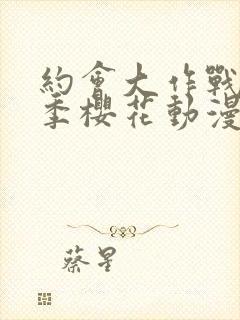 約會大作戰
季櫻花動漫
蔡星